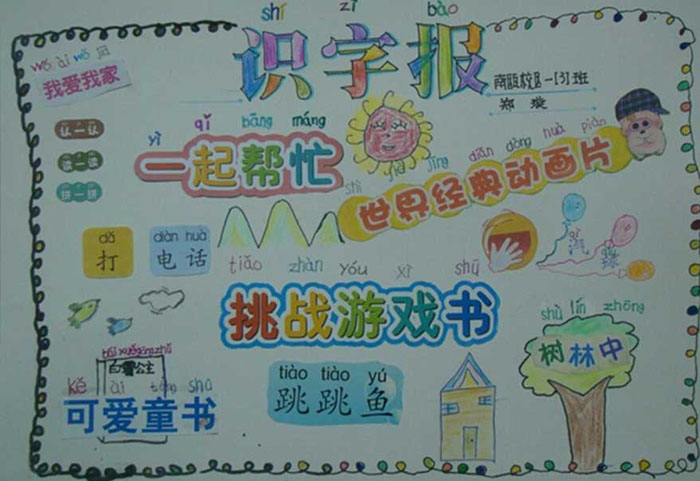 shí zì bào
识字报
wǒ ài wǒ jiā
我爱我家
南瓯校区一(3)班
郑漩
认一认
读一读
拼一拼
yì qǐ bāng máng
一起帮忙
shì jiè jīng diǎn dòng huà piàn
世界经典动画片
dǎ
打
diàn huà
电话
汽球
tiǎo zhàn yóu xì shū
挑战游戏书
shù lín zhōng
树林中
bái xuě gōng zhǔ
白雪公主
kě ài tóng shū
可爱童书
tiào tiào yú
跳跳鱼